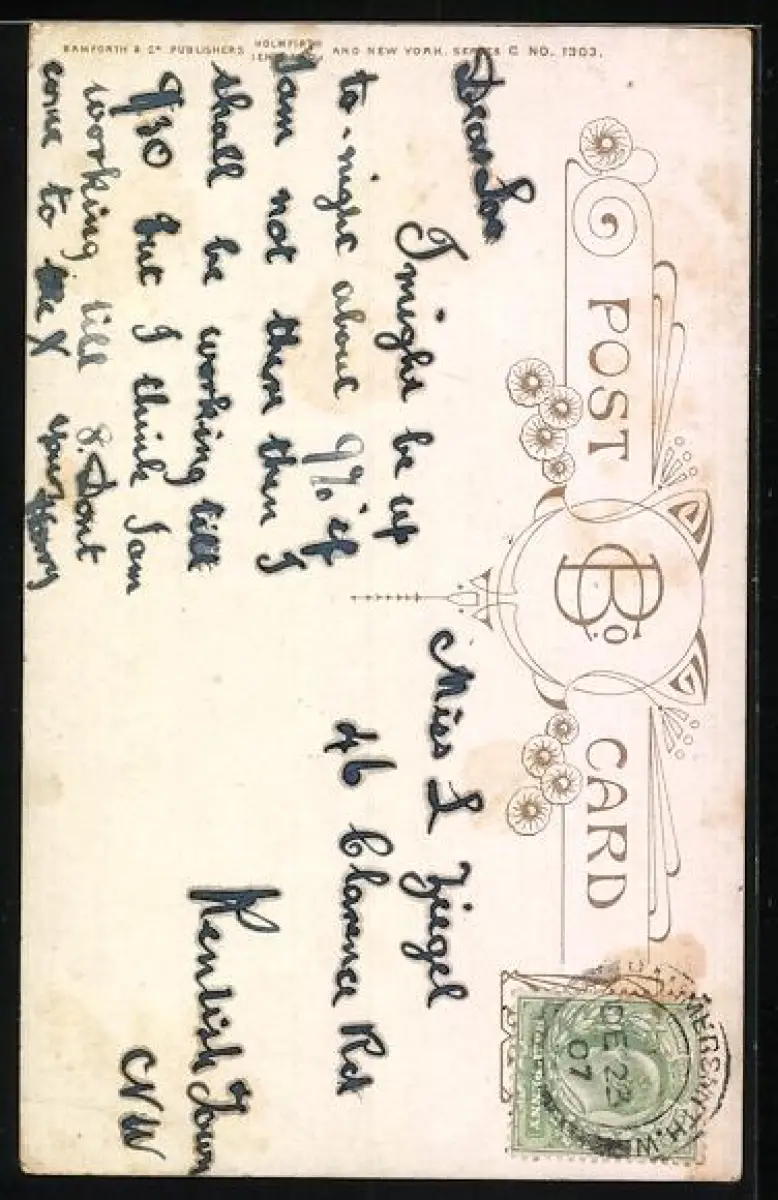 BAMFORTH & Co PUBLISHERS HOLMFIRTH AND NEW YORK. SERIES C NO. 1303.
POST CARD
B & Co
HAMMERSMITH. W
DE 23
07
Dear
I might be up
to-night about 9% if
I am not then then I
shall be working till
9/30 but I think I am
working till 8. Dont
come to the X your Harry
Miss L Ziegel
46 Clarence Rd
Kentish Town
NW